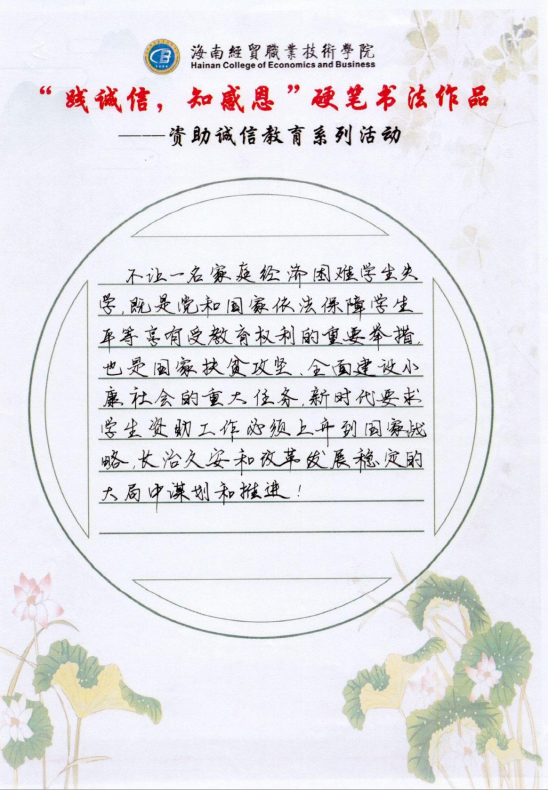 海南經貿職業技術學院
Hainan College of Economics and Business
“践诚信，知感恩”硬笔书法作品
——资助诚信教育系列活动
不让一名家庭经济困难学生失
学,既是党和国家依法保障学生
平等享有受教育权利的重要举措,
也是国家扶贫攻坚、全面建设小
康社会的重大任务,新时代要求
学生资助工作必须上升到国家战
略、长治久安和改革发展稳定的
大局中谋划和推进!